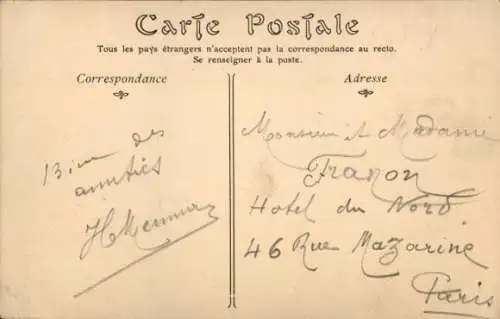 Carte Postale
Tous les pays étrangers n'acceptent pas la correspondance au recto.
Se renseigner à la poste.
Correspondance
13 des
amitiés
Adresse
Monsieur et Madame
Franon
Hotel du Nord
46 Rue Mazarine
Paris